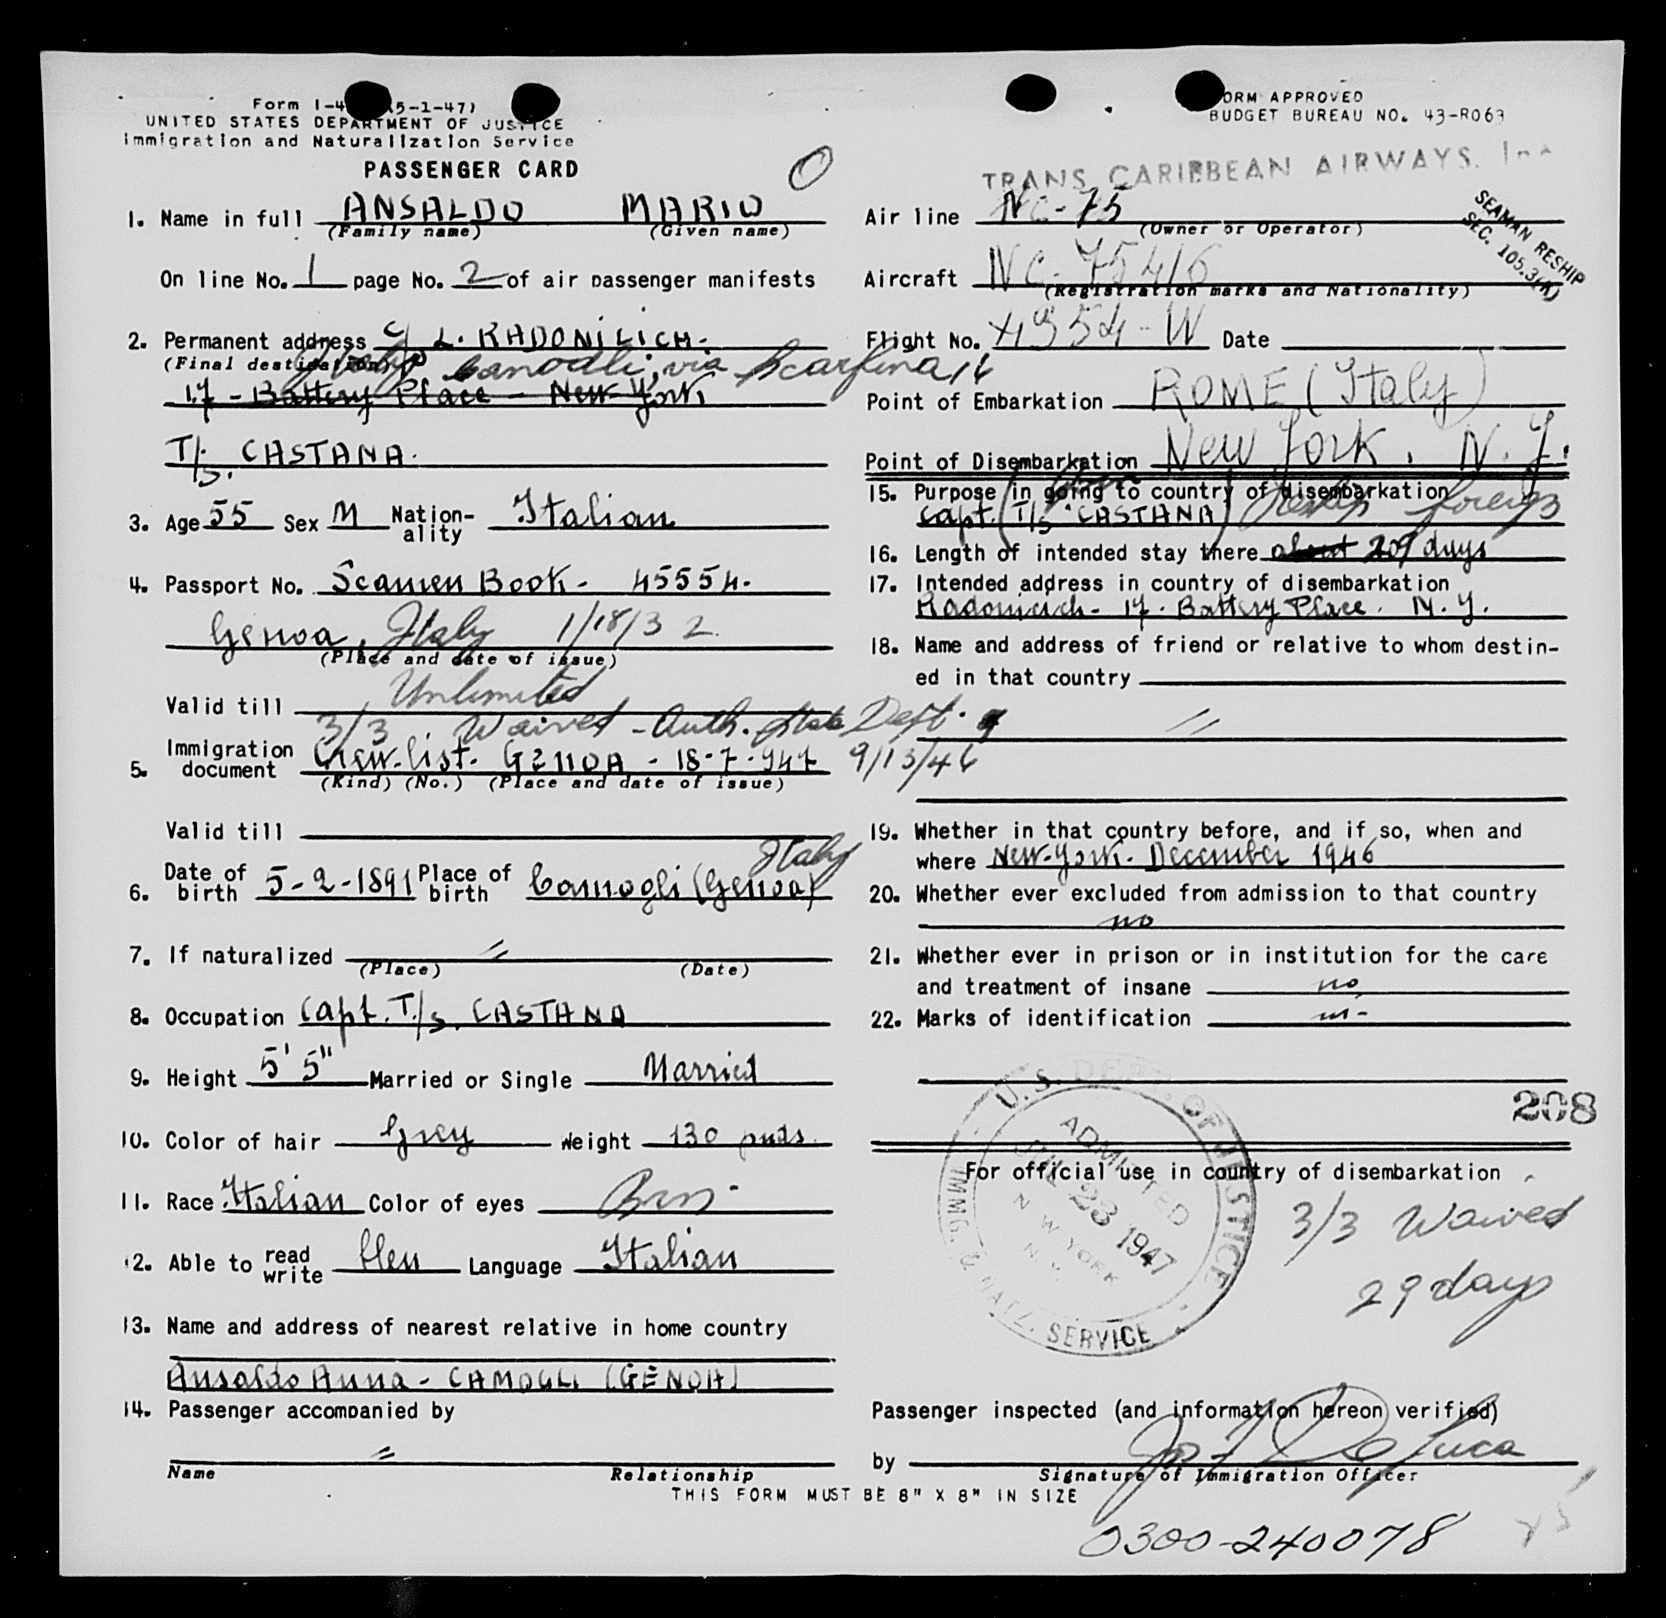 Form I-4 (5-1-47)
UNITED STATES DEPARTMENT OF JUSTICE
Immigration and Naturalization Service
PASSENGER CARD
O
1. Name in full ANSALDO MARIO
(Family name) (Given name)
On line No. 1 page No. 2 of air passenger manifests
2. Permanent address c/ L. RADONILICH.
(Final destination) Italy via
17 - Battery Place - New York
T/s. CASTANA.
3. Age 55 Sex M Nation-ality Italian
4. Passport No. Seamen Book - 45554.
Genoa, Italy 1/18/32
(Place and date of issue)
Unlimited
Valid till
3/3 Waived - Auth. State Dept.
9/13/46
5. Immigration document Crew-list. GENOA - 18-7-947
(Kind) (No.) (Place and date of issue)
Valid till
Italy
6. Date of birth 5-2-1891 Place of birth Camogli (Genoa)
7. If naturalized "
(Place) (Date)
8. Occupation Capt. T/s. CASTANA
9. Height 5' 5" Married or Single Married
10. Color of hair Grey Weight 130 punds
11. Race Italian Color of eyes Brn
12. Able to read write Language Italian
13. Name and address of nearest relative in home country
Ansaldo Anna - CAMOGLI (GENOA)
14. Passenger accompanied by
"
Name Relationship
THIS FORM MUST BE 8" X 8" IN SIZE
FORM APPROVED
BUDGET BUREAU NO. 43-R063
TRANS CARIBBEAN AIRWAYS, Inc
SEAMAN RESHIP
SEC. 105.3(A)
Air line NC-75
(Owner or Operator)
Aircraft NC-75416
(Registration marks and Nationality)
Flight No. 4954-W Date
Point of Embarkation ROME (Italy)
Point of Disembarkation New York, N.Y.
15. Purpose in going to country of disembarkation
Capt. (T/s "CASTANA) Reship foreign
16. Length of intended stay there about 29 days
17. Intended address in country of disembarkation
Radonicich - 17 - Battery Place. N.Y.
18. Name and address of friend or relative to whom destin-
ed in that country
"
19. Whether in that country before, and if so, when and
where New-York - December 1946
20. Whether ever excluded from admission to that country
no
21. Whether ever in prison or in institution for the care
and treatment of insane no
22. Marks of identification
208
U.S. DEPT. OF JUSTICE
ADMITTED
JUL 23 1947
NEW YORK
N.Y.
IMMG. & NATZ. SERVICE
For official use in country of disembarkation
3/3 Waived
29 days
Passenger inspected (and information hereon verified)
by Jos F De Luca
Signature of Immigration Officer
0300-240078